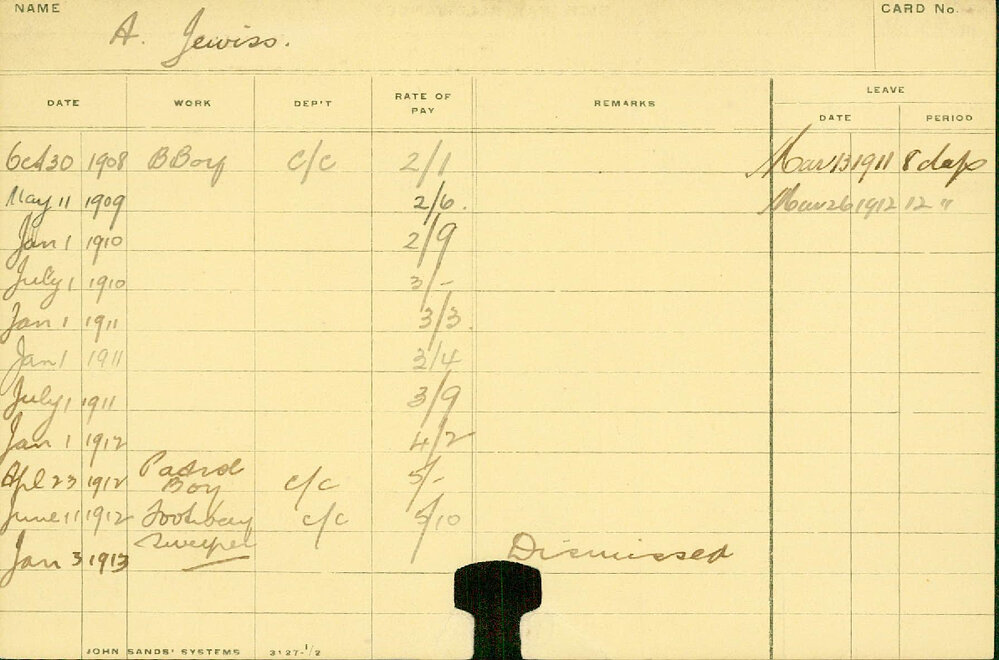 NAME A. Jewiss. CARD No.
LEAVE
DATE WORK DEP'T RATE OF PAY REMARKS DATE PERIOD
Oct 30 1908 B Boy C/C 2/1 Mar 13 1911 8 days
May 11 1909 2/6. Mar 26 1912 12 "
Jan 1 1910 2/9
July 1 1910 3/-
Jan 1 1911 3/3.
Jan 1 1911 3/4
July 1 1911 3/9
Jan 1 1912 4/2
Apl 23 1912 Patrol Boy C/C 5/-
June 11 1912 Footway Sweeper C/C 5/10
Jan 3 1913 Dismissed
JOHN SANDS' SYSTEMS 3127-1/2